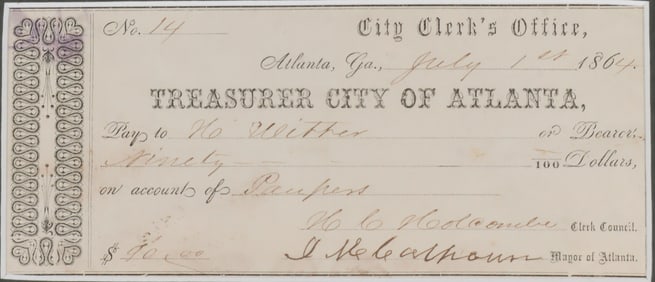 No. 14 City Clerk's Office,
Atlanta, Ga., July 1st 1864.
TREASURER CITY OF ATLANTA,
Pay to H. or Bearer,
Ninety /100 Dollars,
on account of Paupers
H C Holcombe Clerk Council.
$ 90.00 J M Calhoun Mayor of Atlanta.